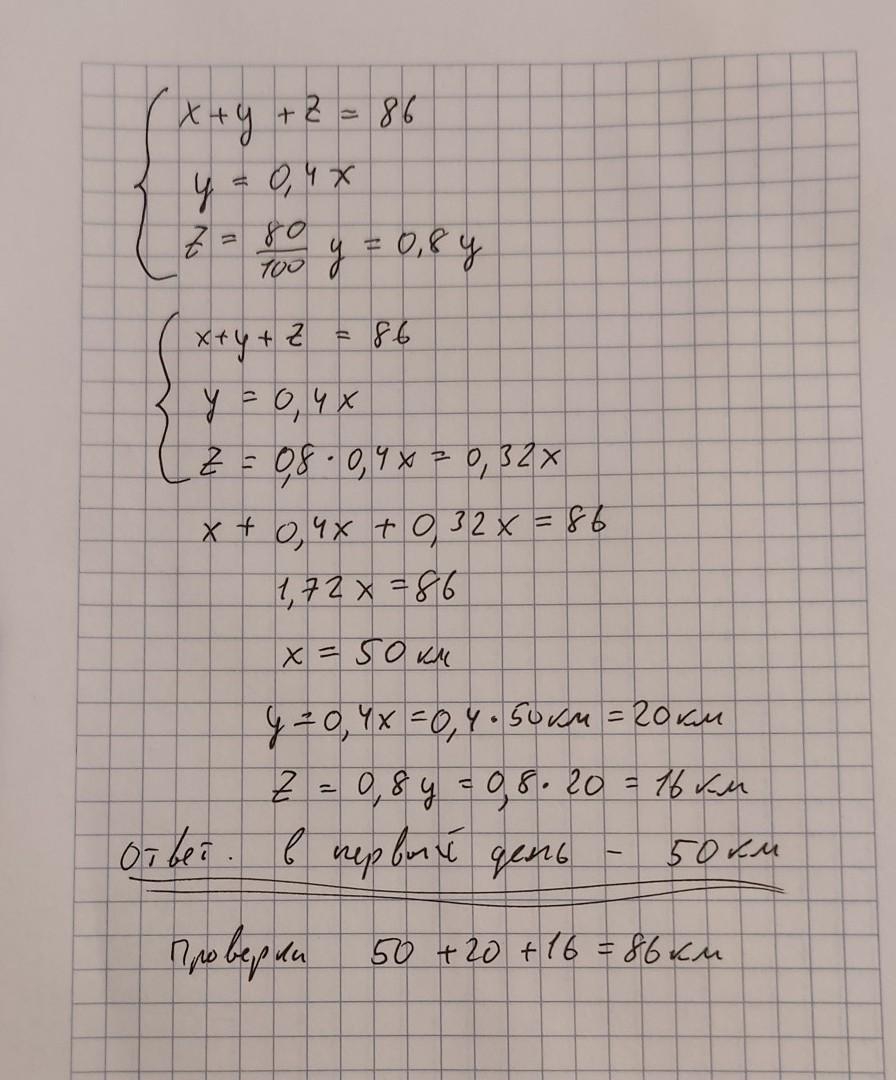 x + y + z = 86
y = 0,4 x
z = 80/100 y = 0,8 y
x + y + z = 86
y = 0,4 x
z = 0,8 · 0,4 x = 0,32 x
x + 0,4x + 0,32 x = 86
1,72 x = 86
x = 50 км
y = 0,4x = 0,4 · 50 км = 20 км
z = 0,8 y = 0,8 · 20 = 16 км
Ответ. в первый день - 50 км
Проверка 50 + 20 + 16 = 86 км